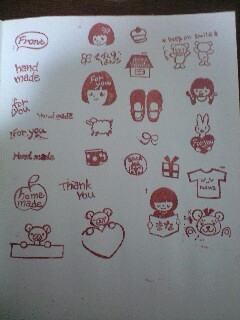 From
Keep on Smile
hand
made
for
you
for you
Hand made
for you
for you
Hand made
home
made
Thank
You
NEWS
まな